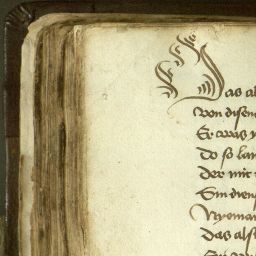 Das al
von disen
Er was
do so lan
der mit
Sin dien
Nyeman
das als